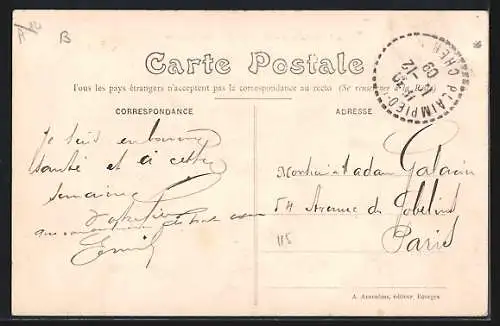 B
Carte Postale
Tous les pays étrangers n'acceptent pas la correspondance au recto (Se renseigner à la Poste)
CORRESPONDANCE
ADRESSE
PLAIMPIED
CHER
11 -12
09
Je suis en bonne
santé et à cette
semaine
Emile
Monsieur Madame
54 Avenue des Gobelins
Paris
115
A. Auxenfans, éditeur, Bourges